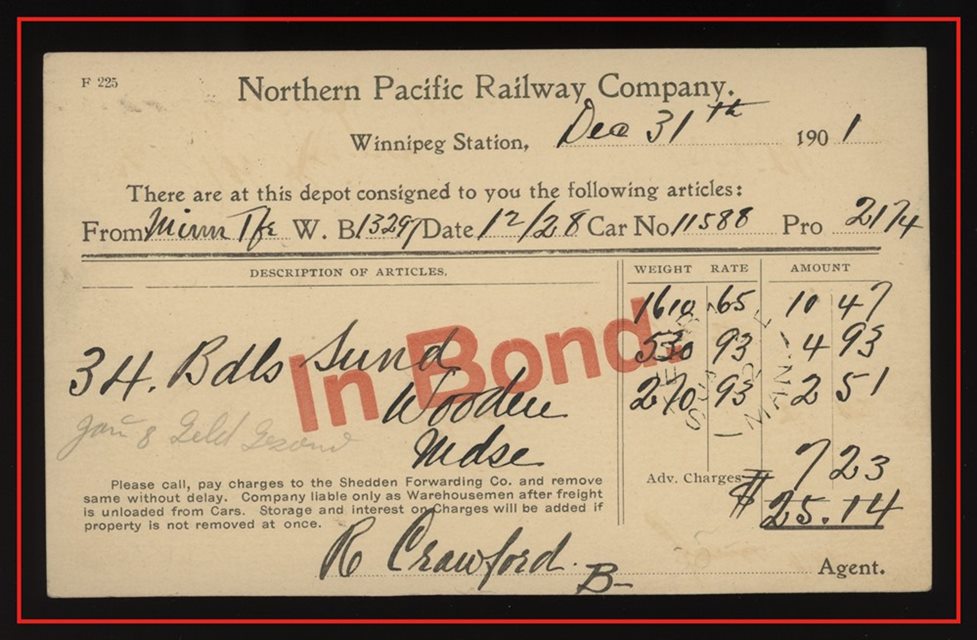 F 225
Northern Pacific Railway Company.
Winnipeg Station, Dec 31th 1901
There are at this depot consigned to you the following articles:
From Minn Tfr W. B. 13297 Date 12/28 Car No. 11588 Pro 2174
DESCRIPTION OF ARTICLES. WEIGHT RATE AMOUNT
1610 65 10 47
34. Bdls Sund 530 93 4 93
Wooden 270 93 2 51
Mdse
In Bond.
MAN
Adv. Charges 7 23
$25.14
Please call, pay charges to the Shedden Forwarding Co. and remove
same without delay. Company liable only as Warehousemen after freight
is unloaded from Cars. Storage and interest on Charges will be added if
property is not removed at once.
R Crawford. B- Agent.